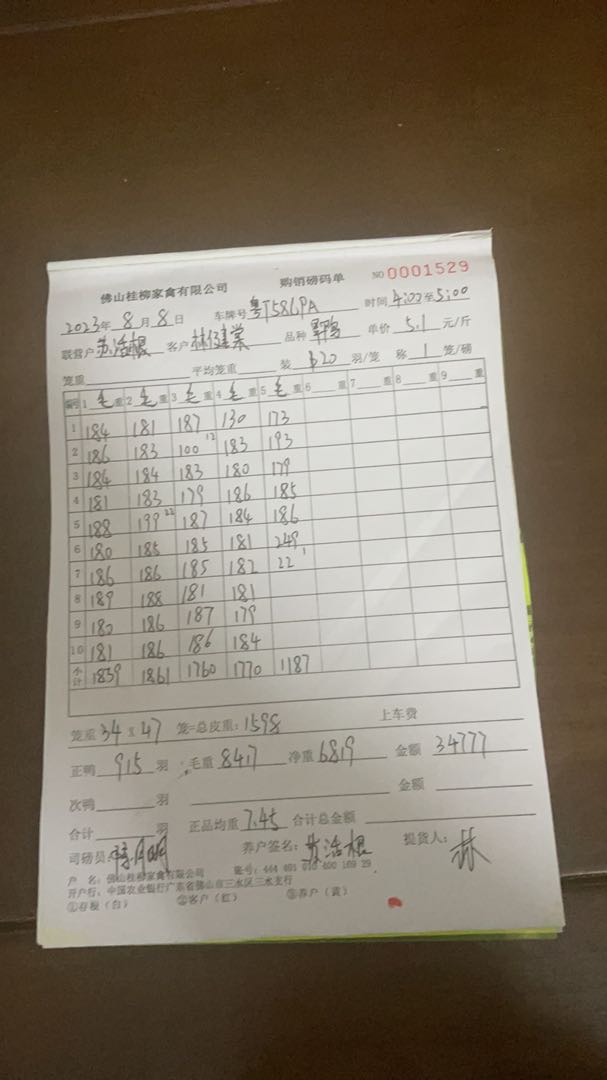 佛山桂柳家禽有限公司 购销磅码单 NO 0001529
2023年 8月 8日 车牌号 粤T58LPA 时间 4:00至5:00
联营户 苏活根 客户 品种 单价 5.1 元/斤
笼重 平均笼重 装 20 羽/笼 称 1 笼/磅
编号 1 毛 重 2 毛 重 3 毛 重 4 毛 重 5 毛 重 6 重 7 重 8 重 9 重
1 184 181 187 130 173
2 186 183 100 12 183 193
3 184 184 183 180 179
4 181 183 179 186 185
5 188 199 22 187 184 186
6 180 185 185 181 249
7 186 186 185 182 22 1
8 189 188 181 181
9 180 186 187 179
10 181 186 186 184
小计 1839 1861 1760 1770 1187
笼重 34 x 47 笼=总皮重: 1598 上车费
正鸭 915 羽 毛重 8417 净重 6819 金额 34777
次鸭 羽 金额
合计 羽 正品均重 7.45 合计总金额
司磅员: 养户签名: 苏活根 提货人: 林
户 名: 佛山桂柳家禽有限公司 账号: 444 401 010 400 169 29
开户行: 中国农业银行广东省佛山市三水区三水支行
①存根(白) ②客户(红) ③养户(黄)